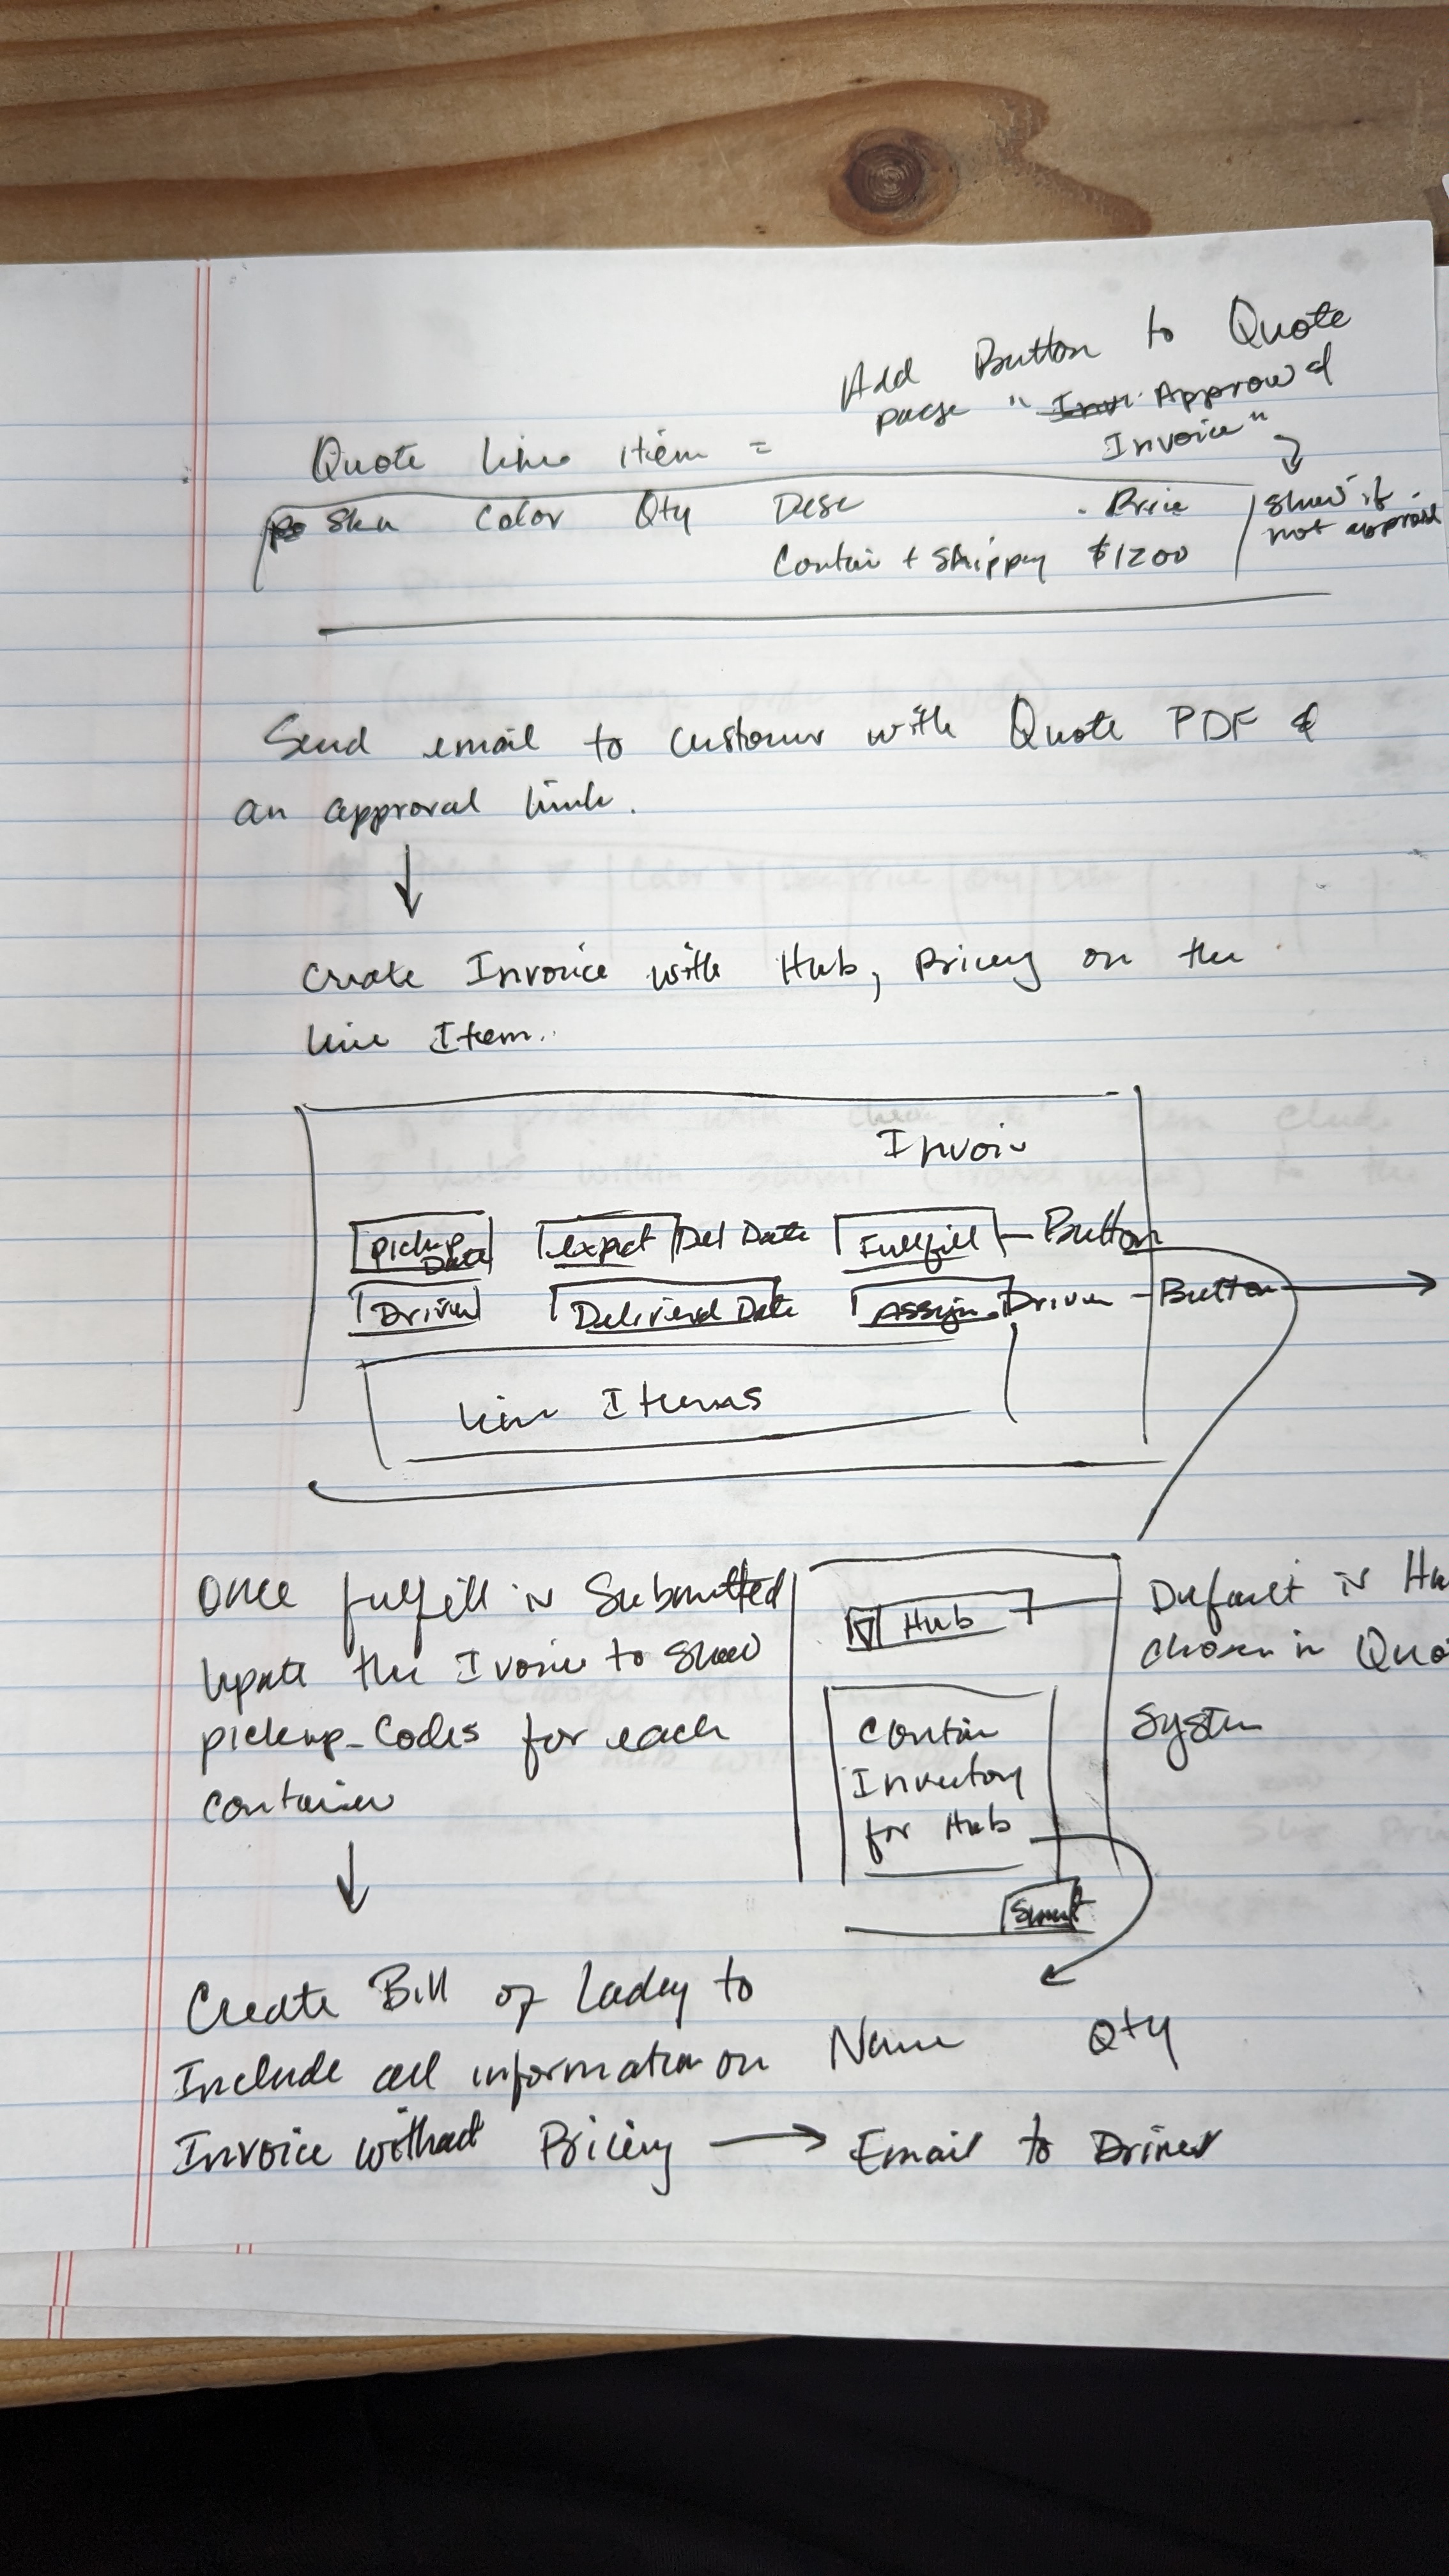 Add Button to Quote
page " Approved
Invoice"
Quote line item =
Sku Color Qty Desc Price
Contain + Shipping $1200
Show if
not approved
Send email to customer with Quote PDF &
an approval link.
Create Invoice with Hub, Pricing on the
line Item.
Invoice
pickup Date expect Del Date Fullfill - Button
Driver Deliverd Date Assign Driver - Button
Line Items
Once fulfill is Submitted
update the Ivoice to show
pickup_Codes for each
container
Hub
Contain
Inventory
for Hub
Submit
Default is Hu
chosen in Quo
System
Name Qty
Create Bill of Lading to
Include all information on
Invoice without Pricing → Email to Driver